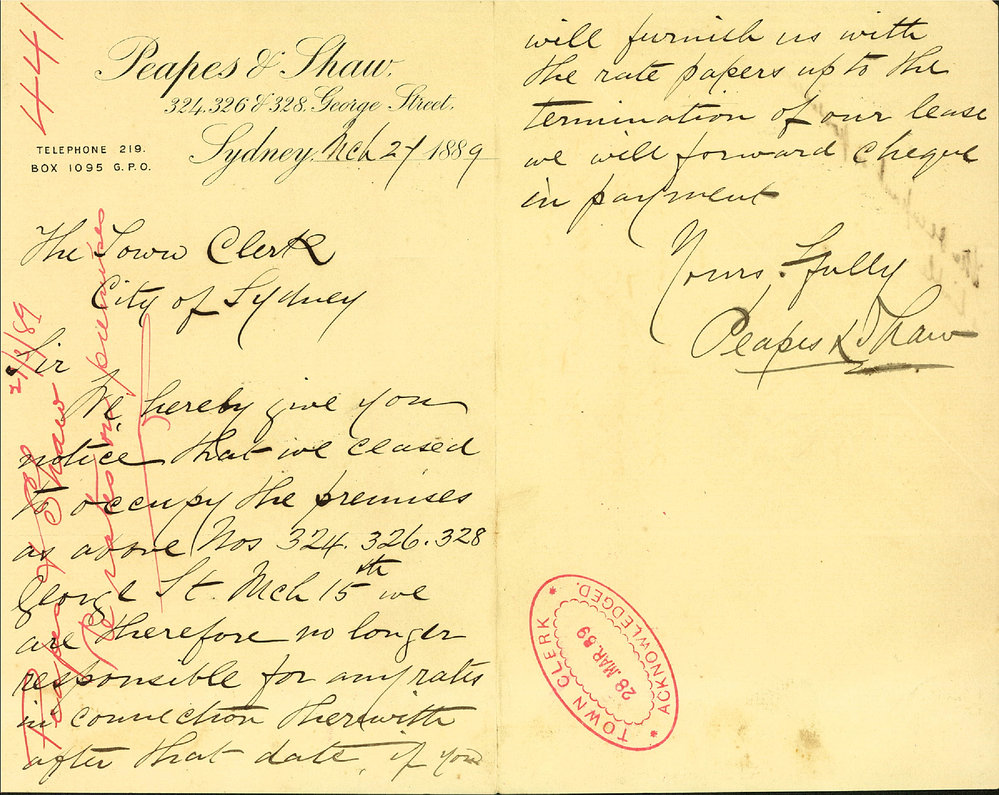 441
Peapes & Shaw.
324.326 & 328. George Street.
TELEPHONE 219.
BOX 1095 G.P.O.
Sydney, Mch 27 1889
The Town Clerk
City of Sydney
Sir
We hereby give you
notice that we ceased
to occupy the premises
as above Nos 324. 326. 328
George St. Mch 15th we
are therefore no longer
responsible for any rates
in connection therewith
after that date, if you
will furnish us with
the rate papers up to the
termination of our lease
we will forward cheque
in payment
Yours, ffully
Peapes & Shaw
Peapes & Shaw
Re rates on premises
TOWN CLERK
28 MAR. 89
ACKNOWLEDGED.